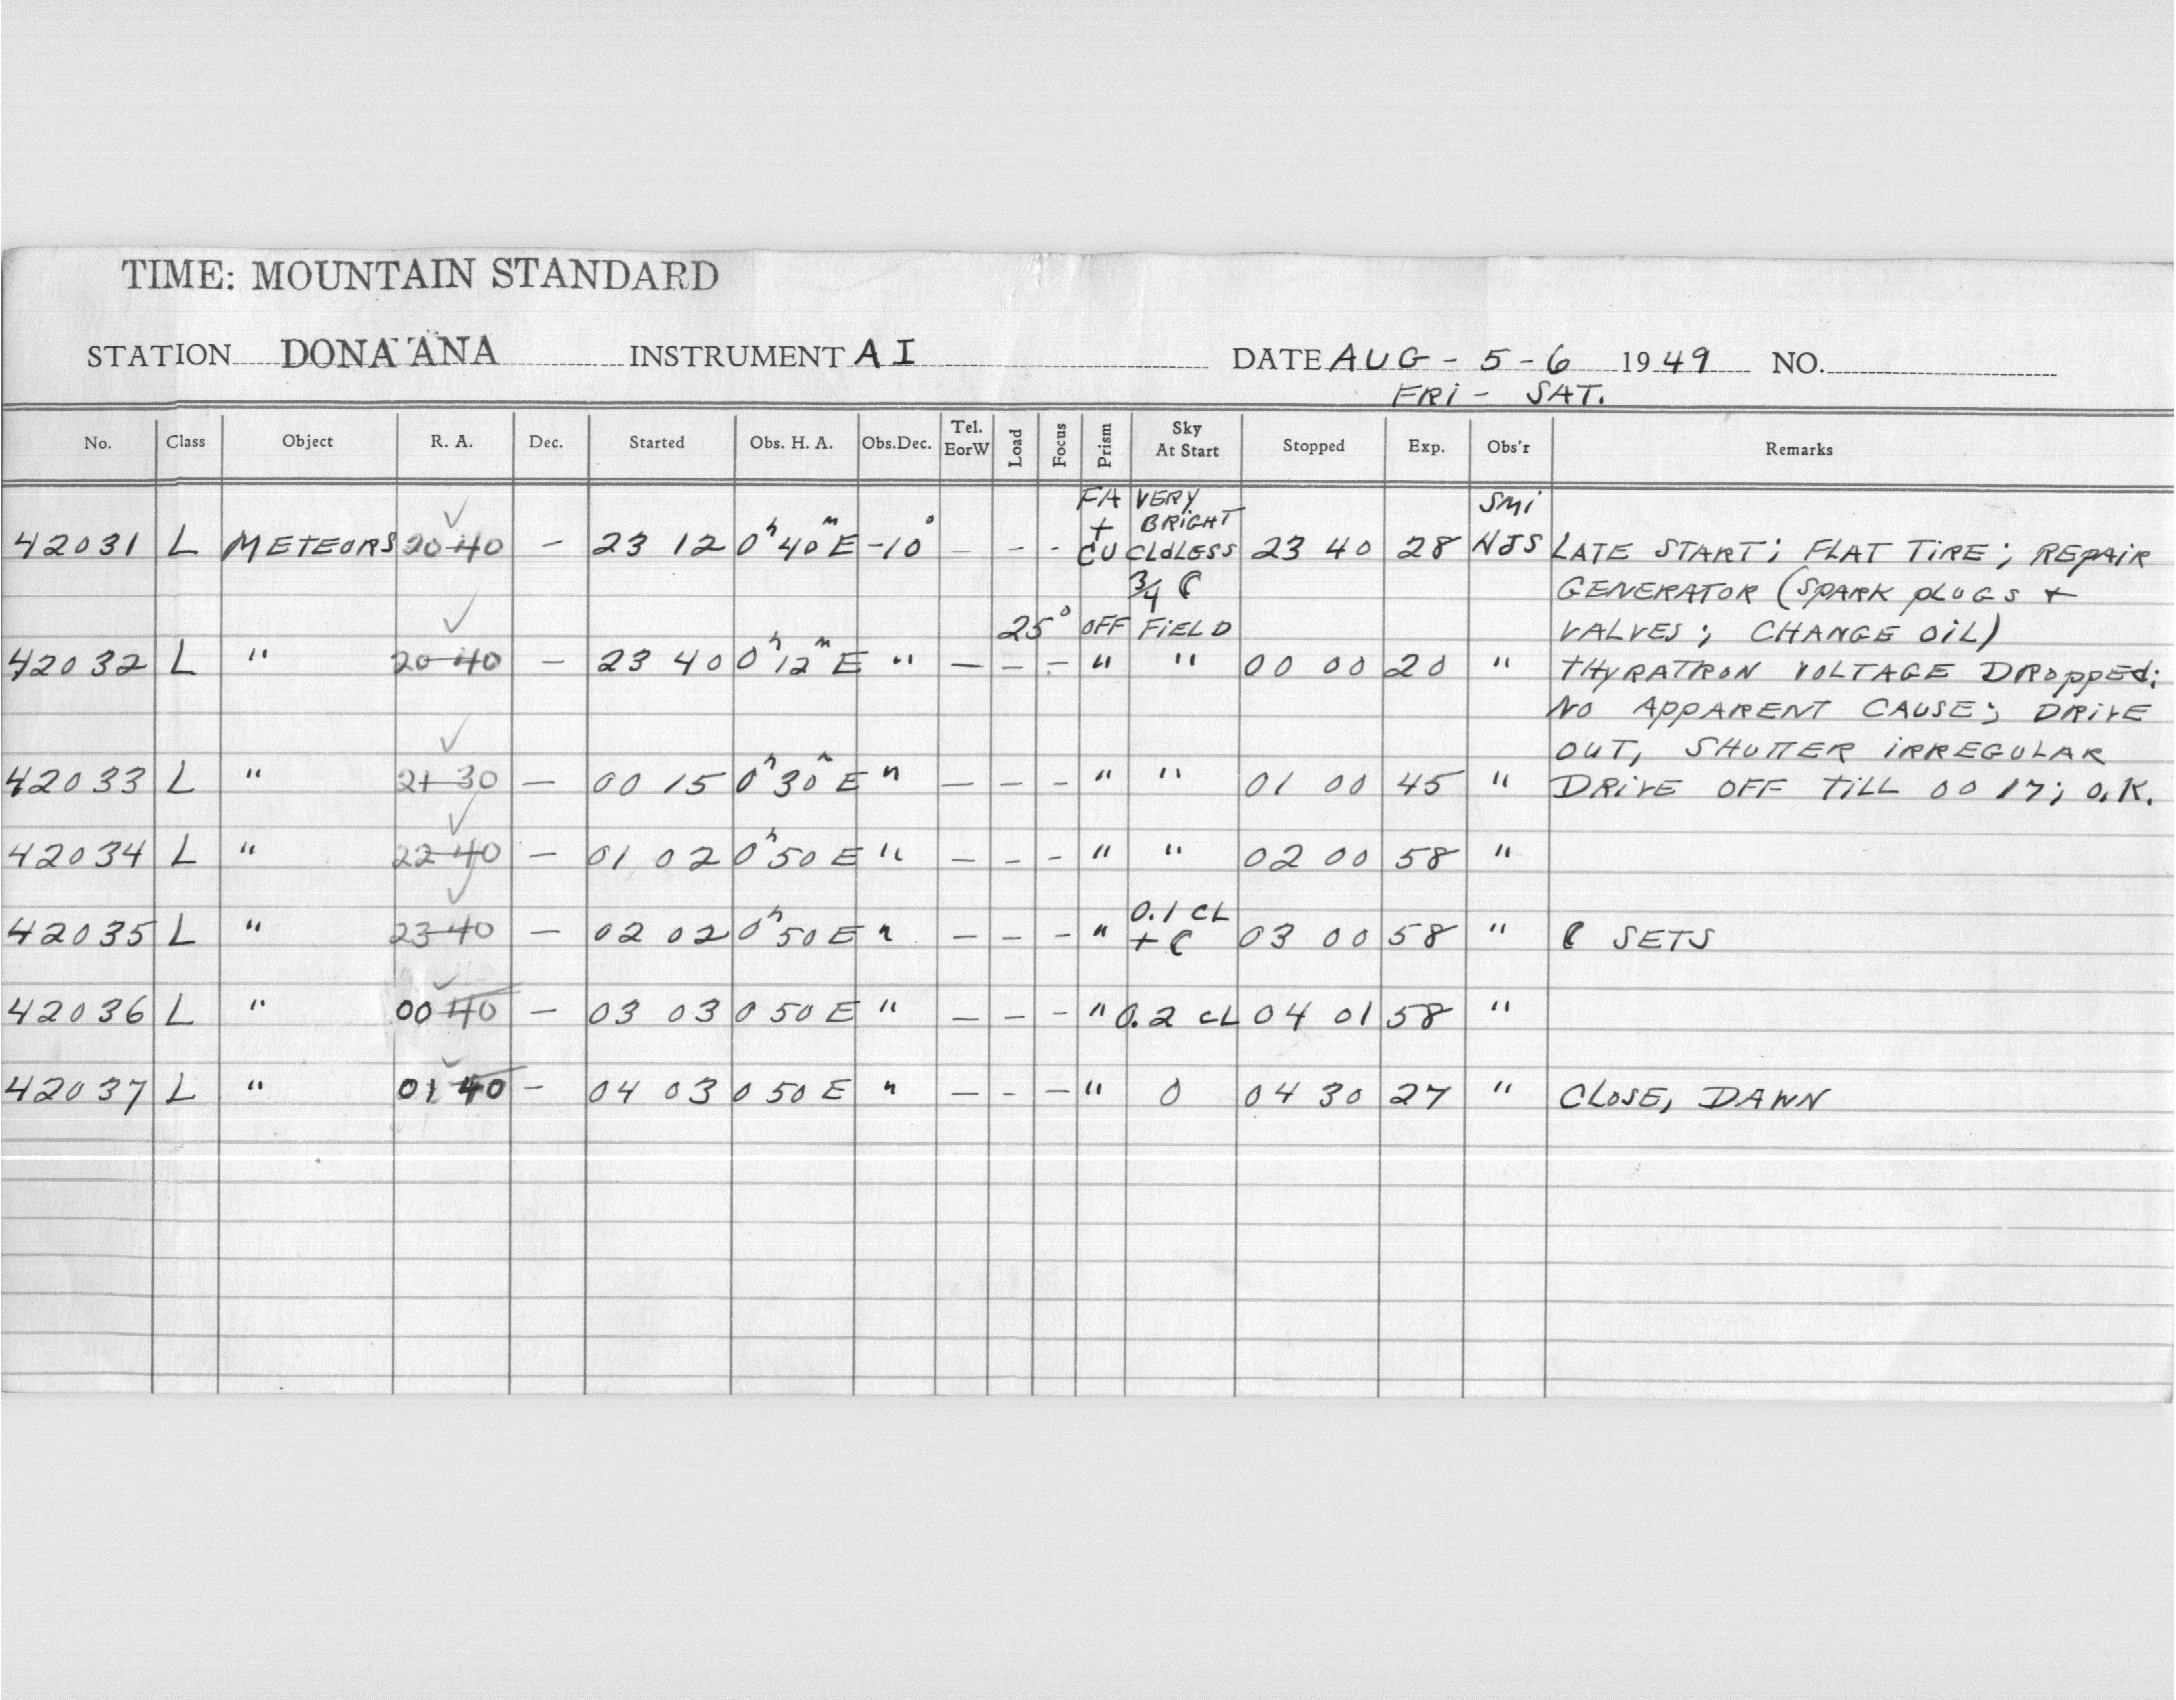 TIME: MOUNTAIN STANDARD
STATION DONA ANA INSTRUMENT AI DATE AUG - 5 - 6 1949 NO.
FRI - SAT.
No. Class Object R. A. Dec. Started Obs. H. A. Obs.Dec. Tel. EorW Load Focus Prism Sky At Start Stopped Exp. Obs'r Remarks
FA VERY SMi
+ BRIGHT
42031 L METEORS 20 40 - 23 12 0h 40m E -10° - - - CU CLdLESS 23 40 28 NJS LATE START; FLAT TIRE; REPAIR
3/4 ☾ GENERATOR (SPARK PLUGS +
25° OFF FIELD VALVES; CHANGE OIL)
42032 L " 20 40 - 23 40 0h 12m E " - - - " " 00 00 20 " THYRATRON VOLTAGE DROPPED;
NO APPARENT CAUSE; DRIVE
OUT, SHUTTER IRREGULAR
42033 L " 21 30 - 00 15 0h 30m E " - - - " " 01 00 45 " DRIVE OFF TILL 00 17; O.K.
42034 L " 22 40 - 01 02 0h 50 E " - - - " " 02 00 58 "
0.1 CL
42035 L " 23 40 - 02 02 0h 50 E " - - - " + ☾ 03 00 58 " ☾ SETS
42036 L " 00 40 - 03 03 0 50 E " - - - " 0.2 CL 04 01 58 "
42037 L " 01 40 - 04 03 0 50 E " - - - " 0 04 30 27 " CLOSE, DAWN